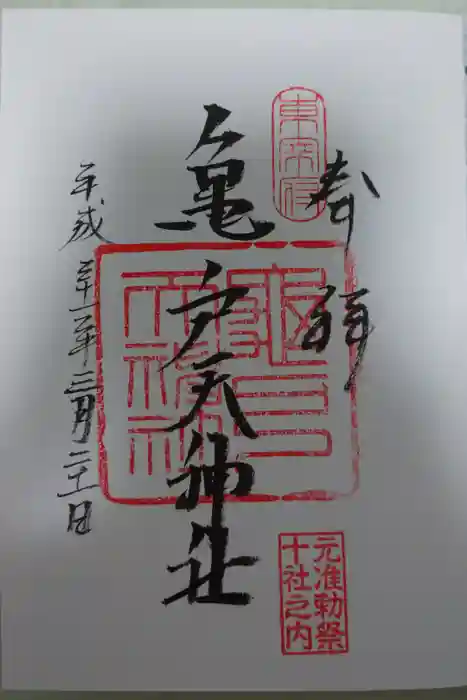 奉拝
東宰府
亀戸天神社
元准勅祭
十社之内
平成三十一年三月二十一日